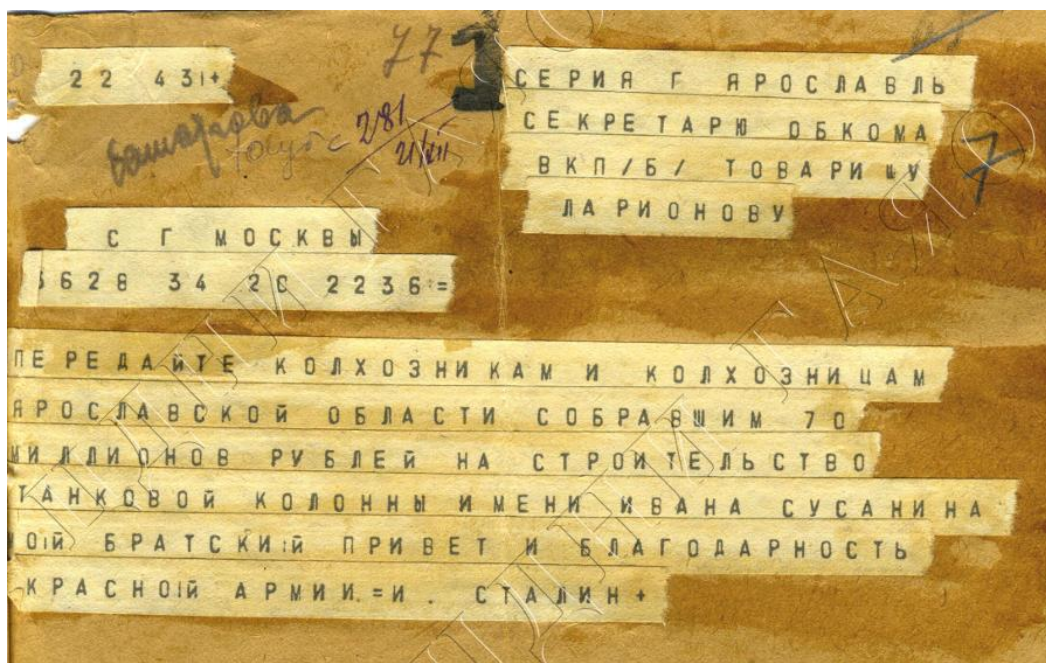 22 431+
77
281
21/XII
СЕРИЯ Г ЯРОСЛАВЛЬ
СЕКРЕТАРЮ ОБКОМА
ВКП/Б/ ТОВАРИЩУ
ЛАРИОНОВУ
С Г МОСКВЫ
3628 34 20 2236=
ПЕРЕДАЙТЕ КОЛХОЗНИКАМ И КОЛХОЗНИЦАМ
ЯРОСЛАВСКОЙ ОБЛАСТИ СОБРАВШИМ 70
МИЛЛИОНОВ РУБЛЕЙ НА СТРОИТЕЛЬСТВО
ТАНКОВОЙ КОЛОННЫ ИМЕНИ ИВАНА СУСАНИНА
ОЙ БРАТСКИЙ ПРИВЕТ И БЛАГОДАРНОСТЬ
КРАСНОЙ АРМИИ.=И. СТАЛИН+